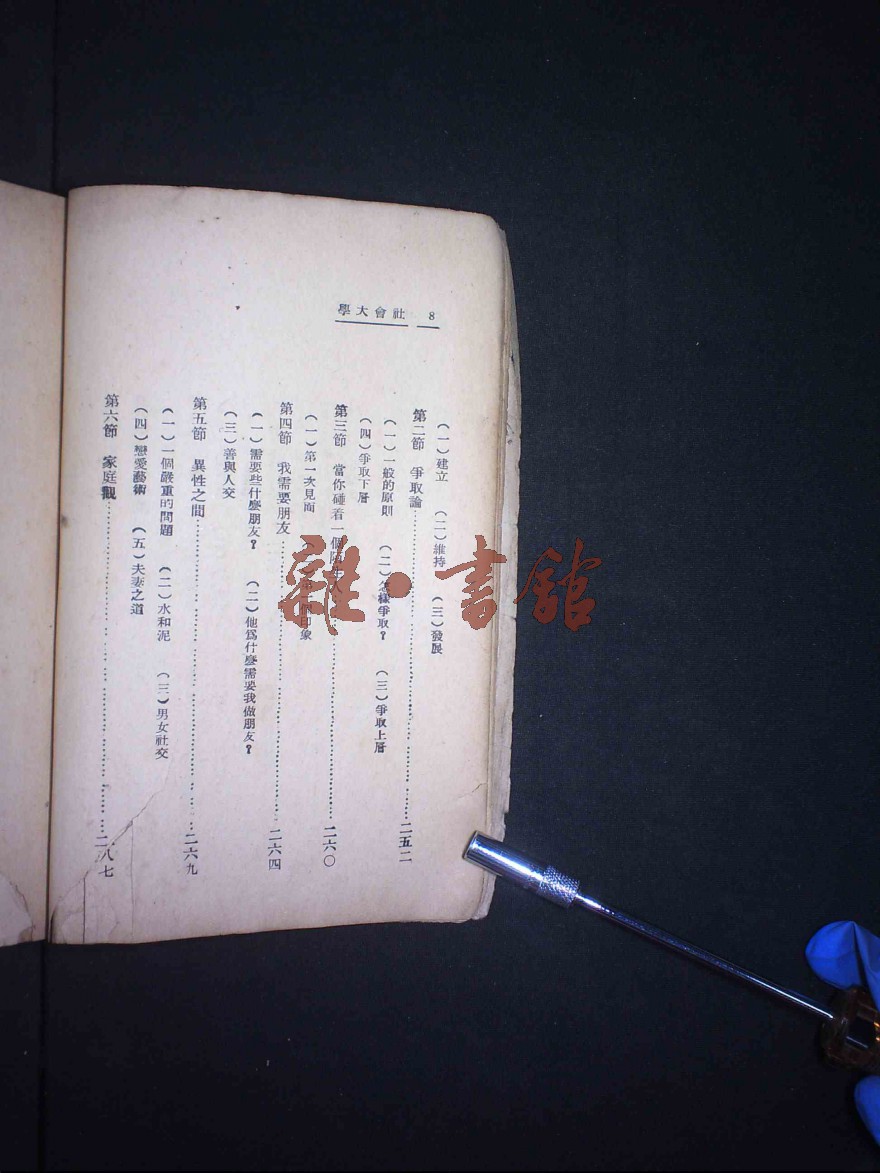 8 社會大學
(一)建立 (二)維持 (三)發展
第二節 爭取論……二五二
(一)一般的原則 (二)怎樣爭取? (三)爭取上層
(四)爭取下層
第三節 當你碰着一個……二六〇
(一)第一次見面 印象
第四節 我需要朋友……二六四
(一)需要些什麼朋友? (二)他爲什麼需要我做朋友?
(三)善與人交
第五節 異性之間……二六九
(一)一個嚴重的問題 (二)水和泥 (三)男女社交
(四)戀愛藝術 (五)夫妻之道
第六節 家庭觀……二八七
雜·書館